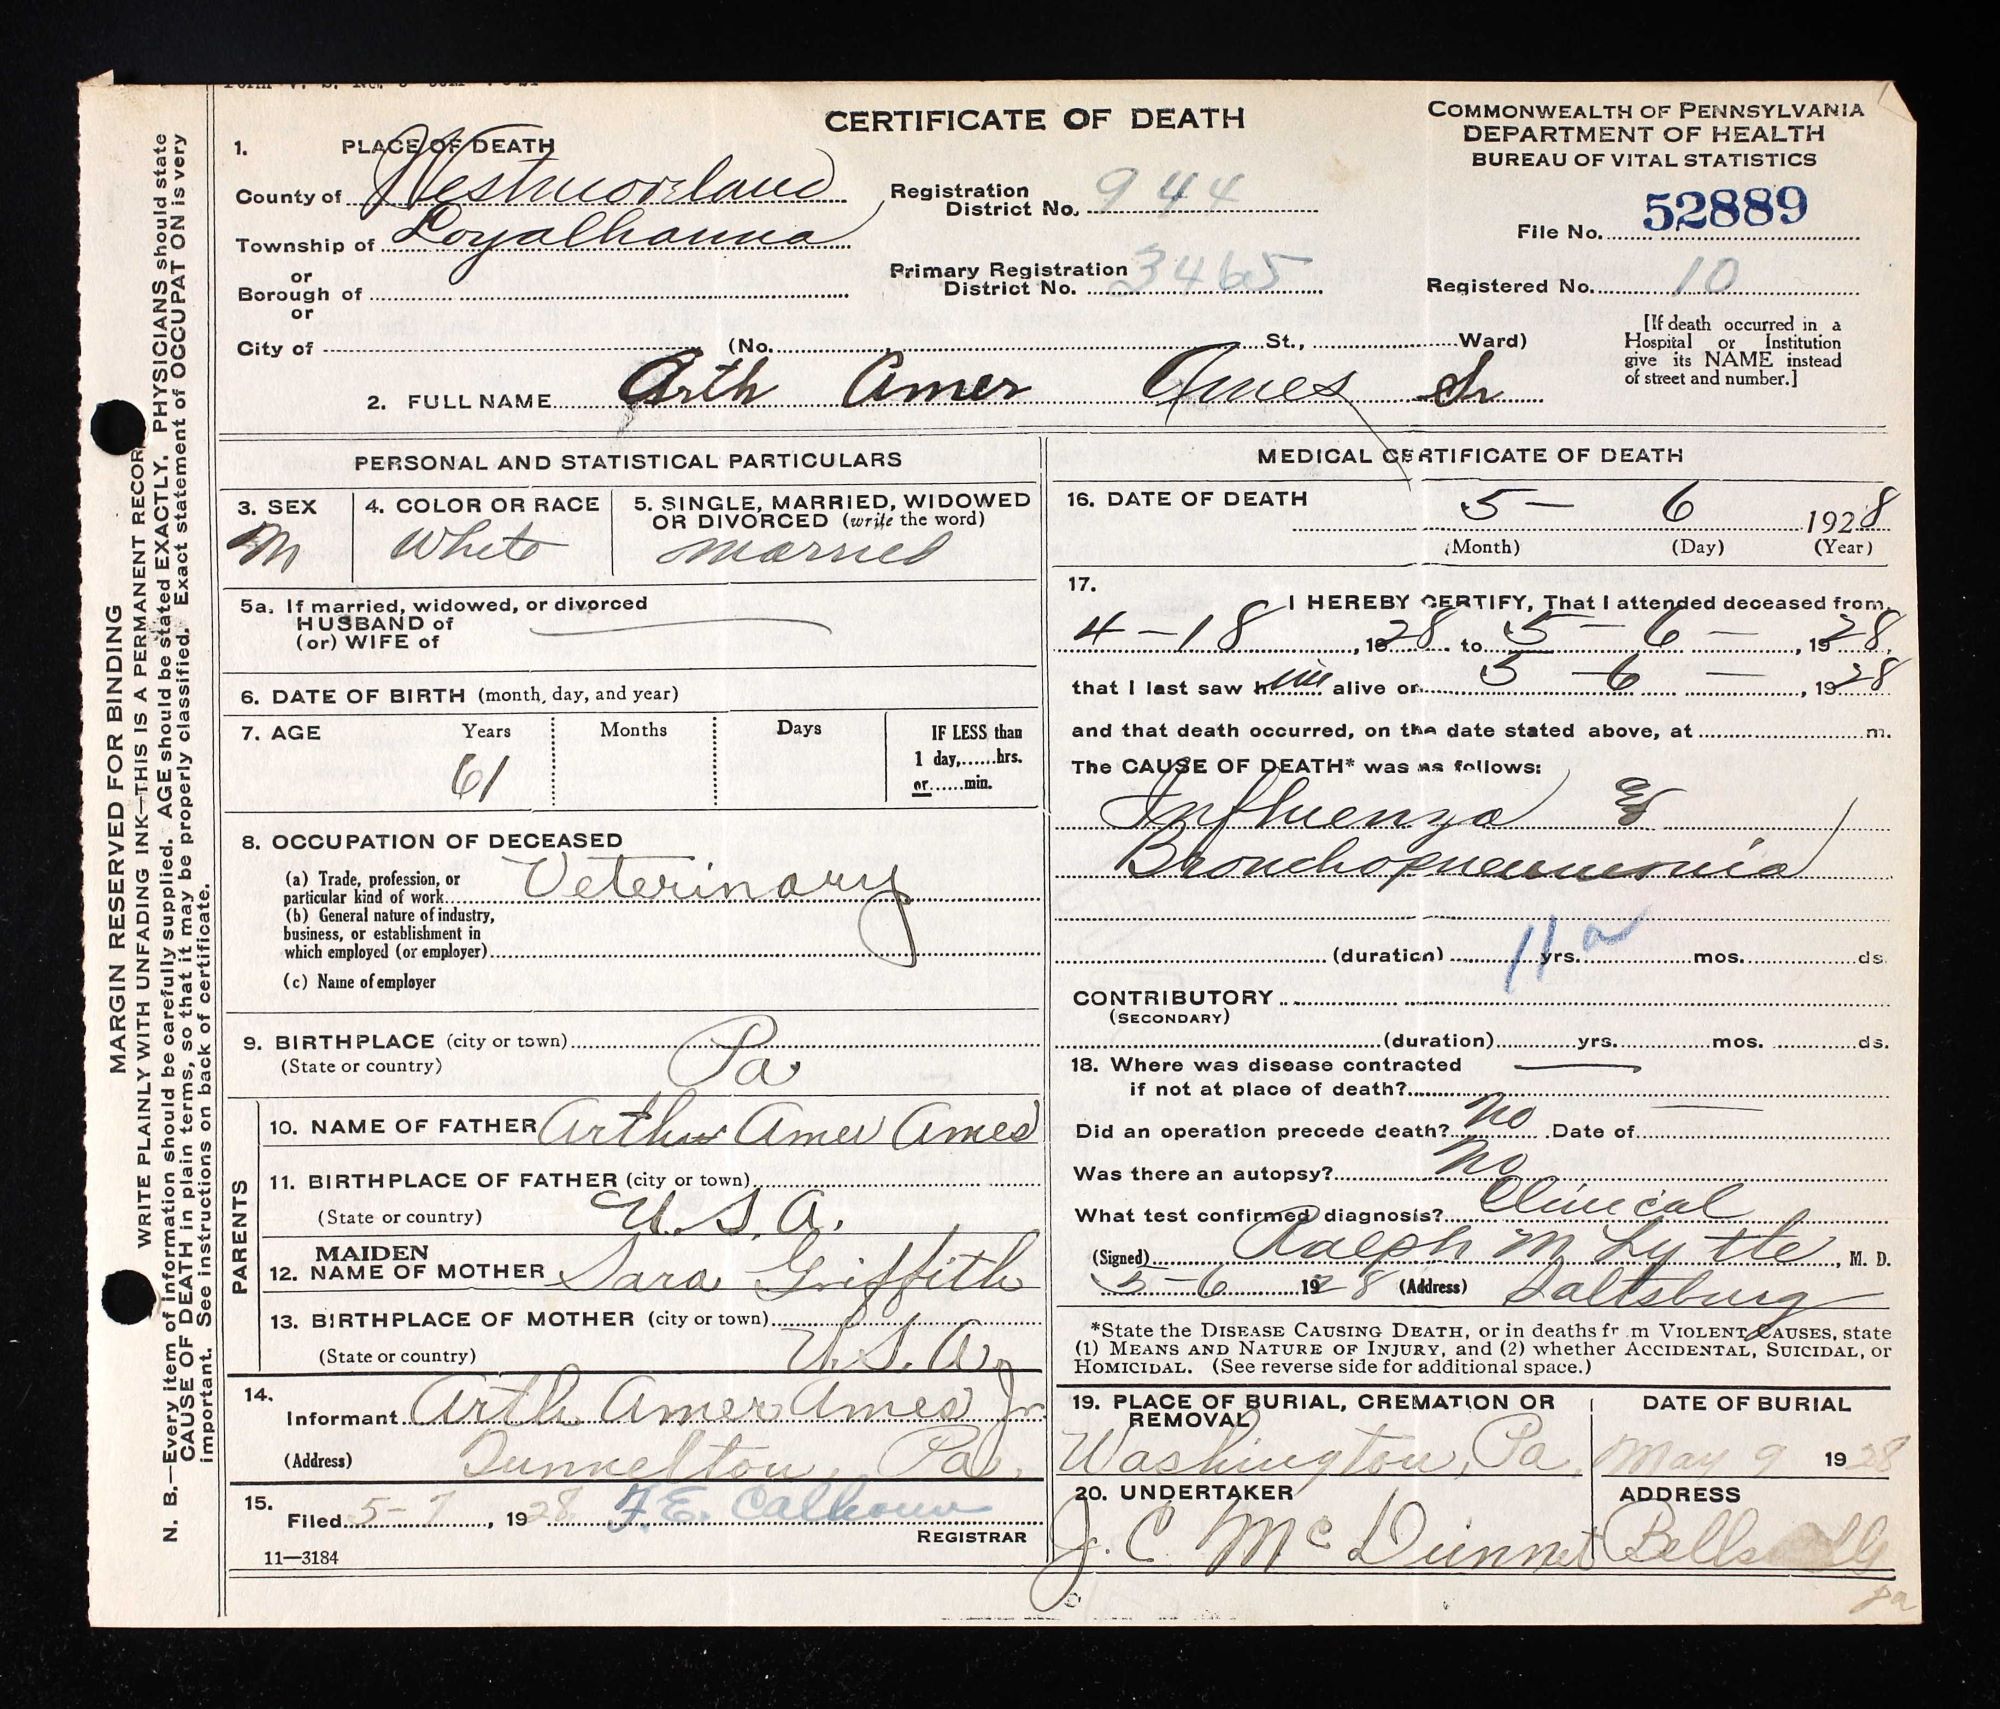 CERTIFICATE OF DEATH
COMMONWEALTH OF PENNSYLVANIA
DEPARTMENT OF HEALTH
BUREAU OF VITAL STATISTICS
1. PLACE OF DEATH
County of Westmoreland
Township of Loyalhanna
or
Borough of
or
City of (No. St., Ward)
Registration District No. 944
Primary Registration District No. 3465
File No. 52889
Registered No. 10
[If death occurred in a
Hospital or Institution
give its NAME instead
of street and number.]
2. FULL NAME Arth Amer Ames Sr
PERSONAL AND STATISTICAL PARTICULARS
3. SEX
M
4. COLOR OR RACE
White
5. SINGLE, MARRIED, WIDOWED
OR DIVORCED (write the word)
Married
5a. If married, widowed, or divorced
HUSBAND of
(or) WIFE of
6. DATE OF BIRTH (month, day, and year)
7. AGE Years Months Days
61
IF LESS than
1 day,......hrs.
or......min.
8. OCCUPATION OF DECEASED
(a) Trade, profession, or
particular kind of work Veterinary
(b) General nature of industry,
business, or establishment in
which employed (or employer)
(c) Name of employer
9. BIRTHPLACE (city or town)
(State or country) Pa
PARENTS
10. NAME OF FATHER Arthur Amer Ames
11. BIRTHPLACE OF FATHER (city or town)
(State or country) U.S.A.
12. MAIDEN NAME OF MOTHER Sara Griffith
13. BIRTHPLACE OF MOTHER (city or town)
(State or country) U.S.A.
14.
Informant Arth Amer Ames Jr.
(Address) Tunnelton, Pa.
15.
Filed 5-7, 1928 F.E. Calhoun
REGISTRAR
11—3184
MEDICAL CERTIFICATE OF DEATH
16. DATE OF DEATH
5 - 6 1928
(Month) (Day) (Year)
17.
I HEREBY CERTIFY, That I attended deceased from
4-18, 1928 to 5-6-, 1928,
that I last saw him alive on 5-6-, 1928
and that death occurred, on the date stated above, at m.
The CAUSE OF DEATH* was as follows:
Influenza &
Bronchopneumonia
11a
(duration) yrs. mos. ds.
CONTRIBUTORY
(SECONDARY)
(duration) yrs. mos. ds.
18. Where was disease contracted
if not at place of death?
Did an operation precede death? No Date of
Was there an autopsy? No
What test confirmed diagnosis? Clinical
(Signed) Ralph M Lytle, M. D.
5-6 1928 (Address) Saltsburg
*State the DISEASE CAUSING DEATH, or in deaths fr m VIOLENT CAUSES, state
(1) MEANS AND NATURE OF INJURY, and (2) whether ACCIDENTAL, SUICIDAL, or
HOMICIDAL. (See reverse side for additional space.)
19. PLACE OF BURIAL, CREMATION OR
REMOVAL
Washington, Pa.
DATE OF BURIAL
May 9 1928
20. UNDERTAKER
J. C. McDinnet
ADDRESS
pa
MARGIN RESERVED FOR BINDING
WRITE PLAINLY WITH UNFADING INK—THIS IS A PERMANENT RECORD
N. B.—Every item of information should be carefully supplied. AGE should be stated EXACTLY. PHYSICIANS should state
CAUSE OF DEATH in plain terms, so that it may be properly classified. Exact statement of OCCUPATION is very
important. See instructions on back of certificate.